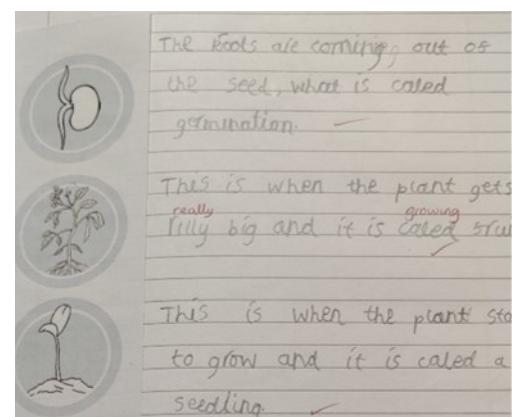 The Roots are coming, out of
the seed, what is caled
germination.
This is when the plant gets
really growing
rilly big and it is caled
This is when the plant sta
to grow and it is caled a
seedling.